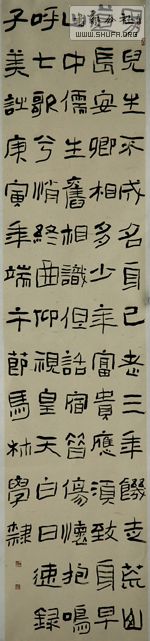 男兒生不成名身已老三年饑走荒山
道長安卿相多少年富貴應須致身早
山中儒生舊相識但話宿昔傷懷抱嗚
呼七歌兮悄終曲仰視皇天白日速錄
子美詩庚寅年端午節馬林學隸
WWW.SHUFA.ORG